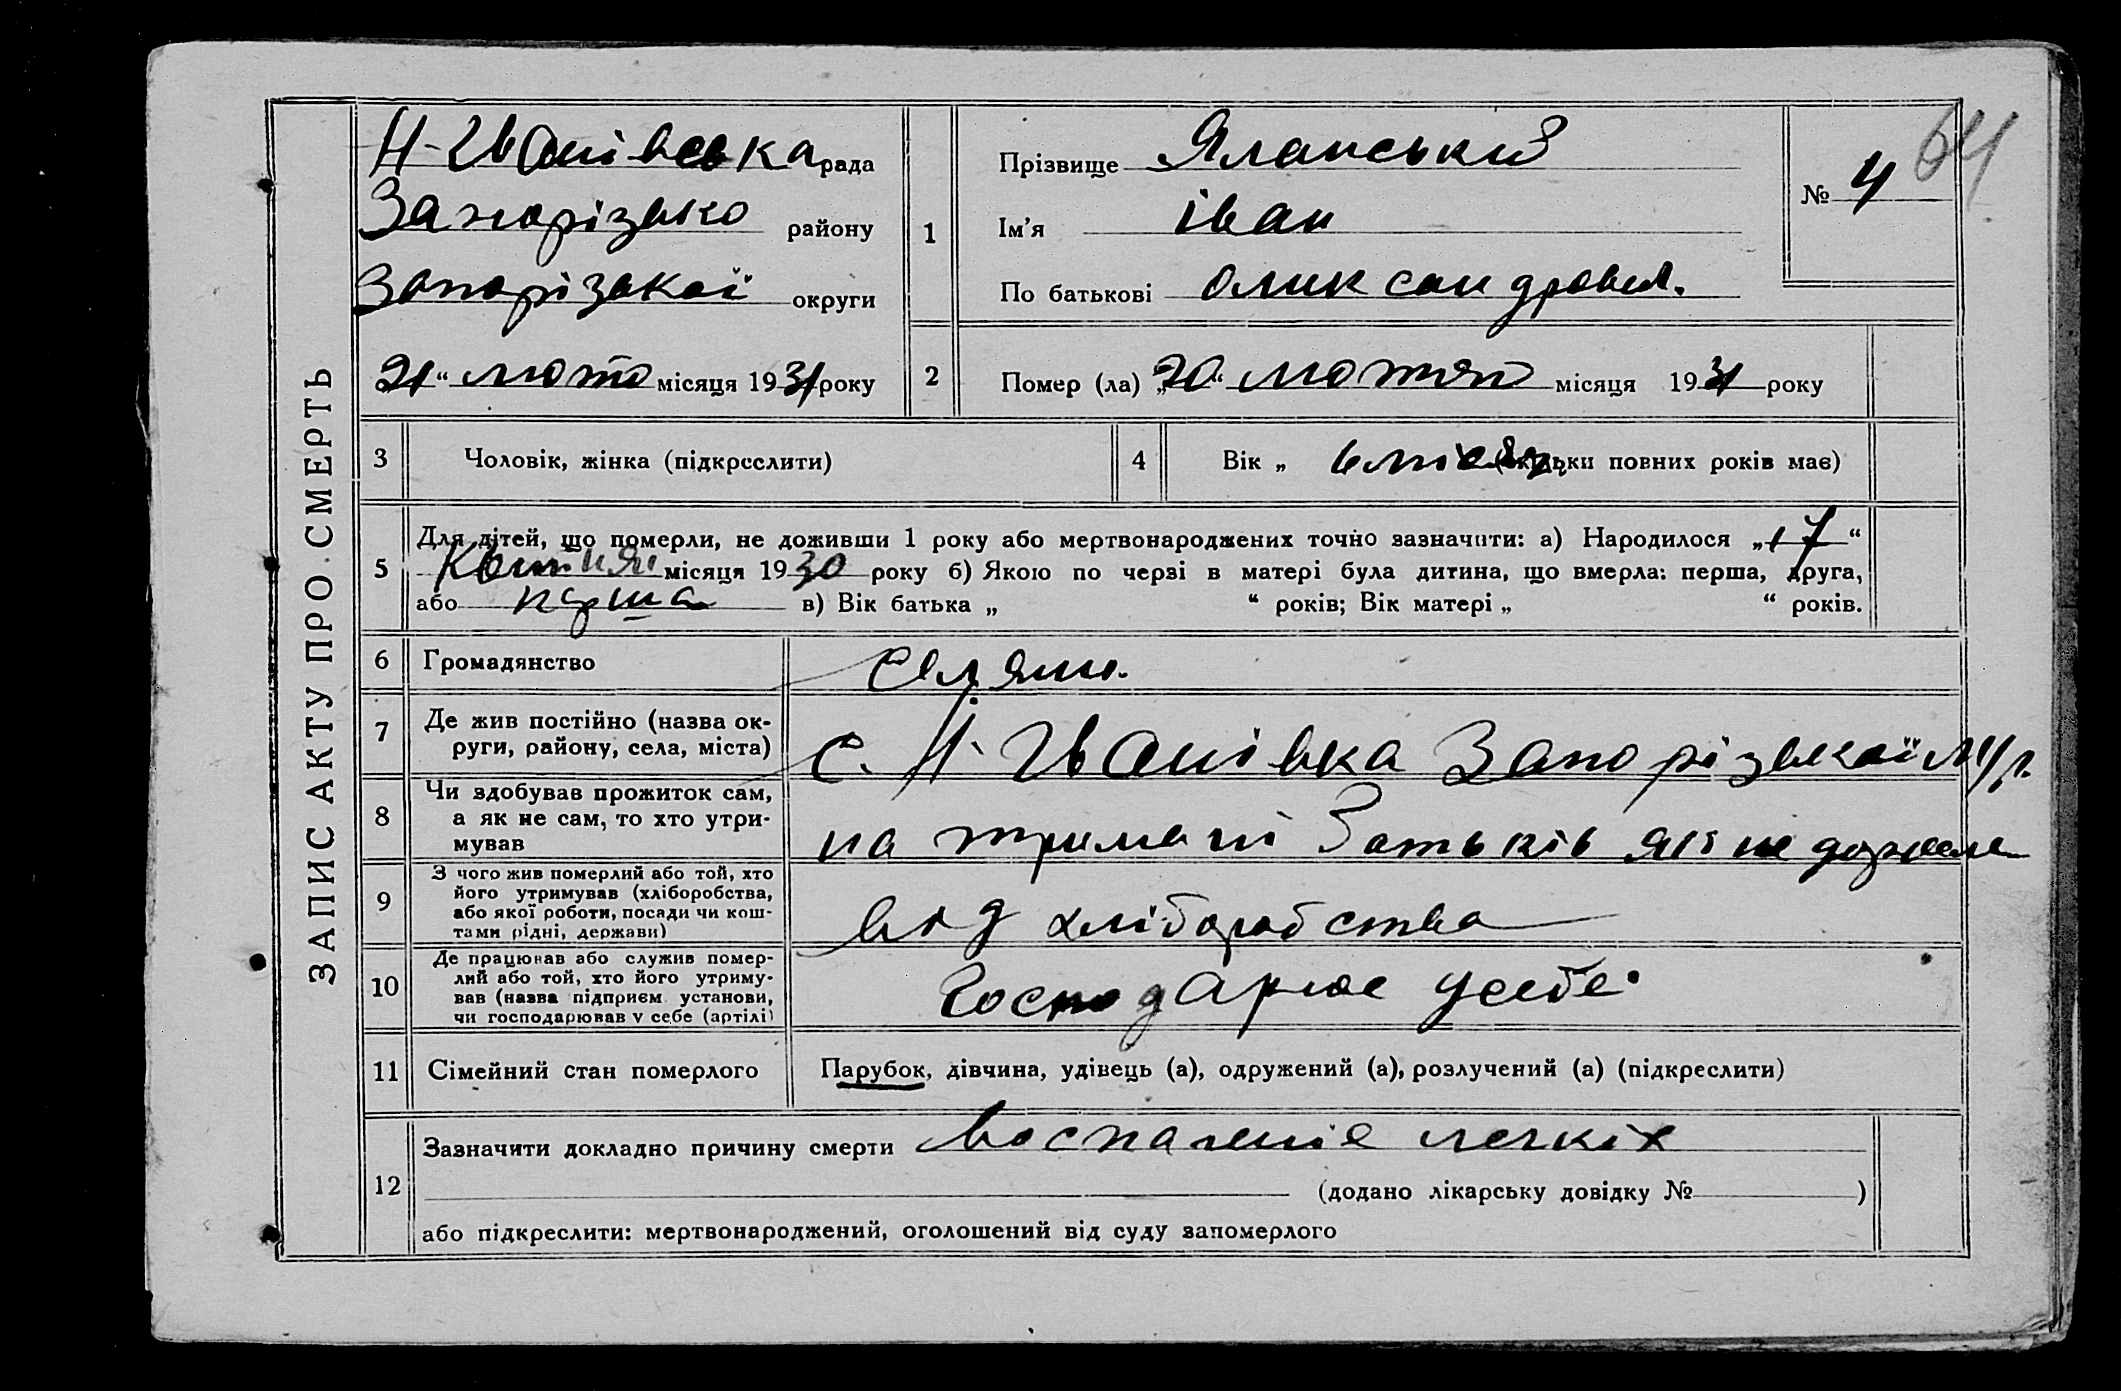 ЗАПИС АКТУ ПРО СМЕРТЬ
Н-Іванівська рада
Запорізько району
Запорізької округи
„21“ люто місяця 1931 року
1
Прізвище Яланський
Ім'я іван
По батькові олик сандрович.
№ 4
64
2 Помер (ла) „20“ лютяго місяця 1931 року
3 Чоловік, жінка (підкреслити)
4 Вік „ (скільки повних років має)
5 Для дітей, що померли, не доживши 1 року або мертвонароджених точно зазначити: а) Народилося „17“
Квітня місяця 1930 року б) Якою по черзі в матері була дитина, що вмерла: перша, друга,
або перша в) Вік батька „ “ років; Вік матері „ “ років.
6 Громадянство селянин.
7 Де жив постійно (назва ок-
руги, району, села, міста)
с. Н-Іванівка Запорізької м/р.
8 Чи здобував прожиток сам,
а як не сам, то хто утри-
мував
на тримані батьків як не доросле
9 З чого жив померлий або той, хто
його утримував (хліборобства,
або якої роботи, посади чи кош-
тами рідні, держави)
від хліборобства
10 Де працював або служив помер-
лий або той, хто його утриму-
вав (назва підприєм. установи,
чи господарював у себе (артілі)
господарює усебе
11 Сімейний стан померлого Парубок, дівчина, удівець (а), одружений (а), розлучений (а) (підкреслити)
12 Зазначити докладно причину смерти Воспаленіе легкіх
(додано лікарську довідку № )
або підкреслити: мертвонароджений, оголошений від суду запомерлого